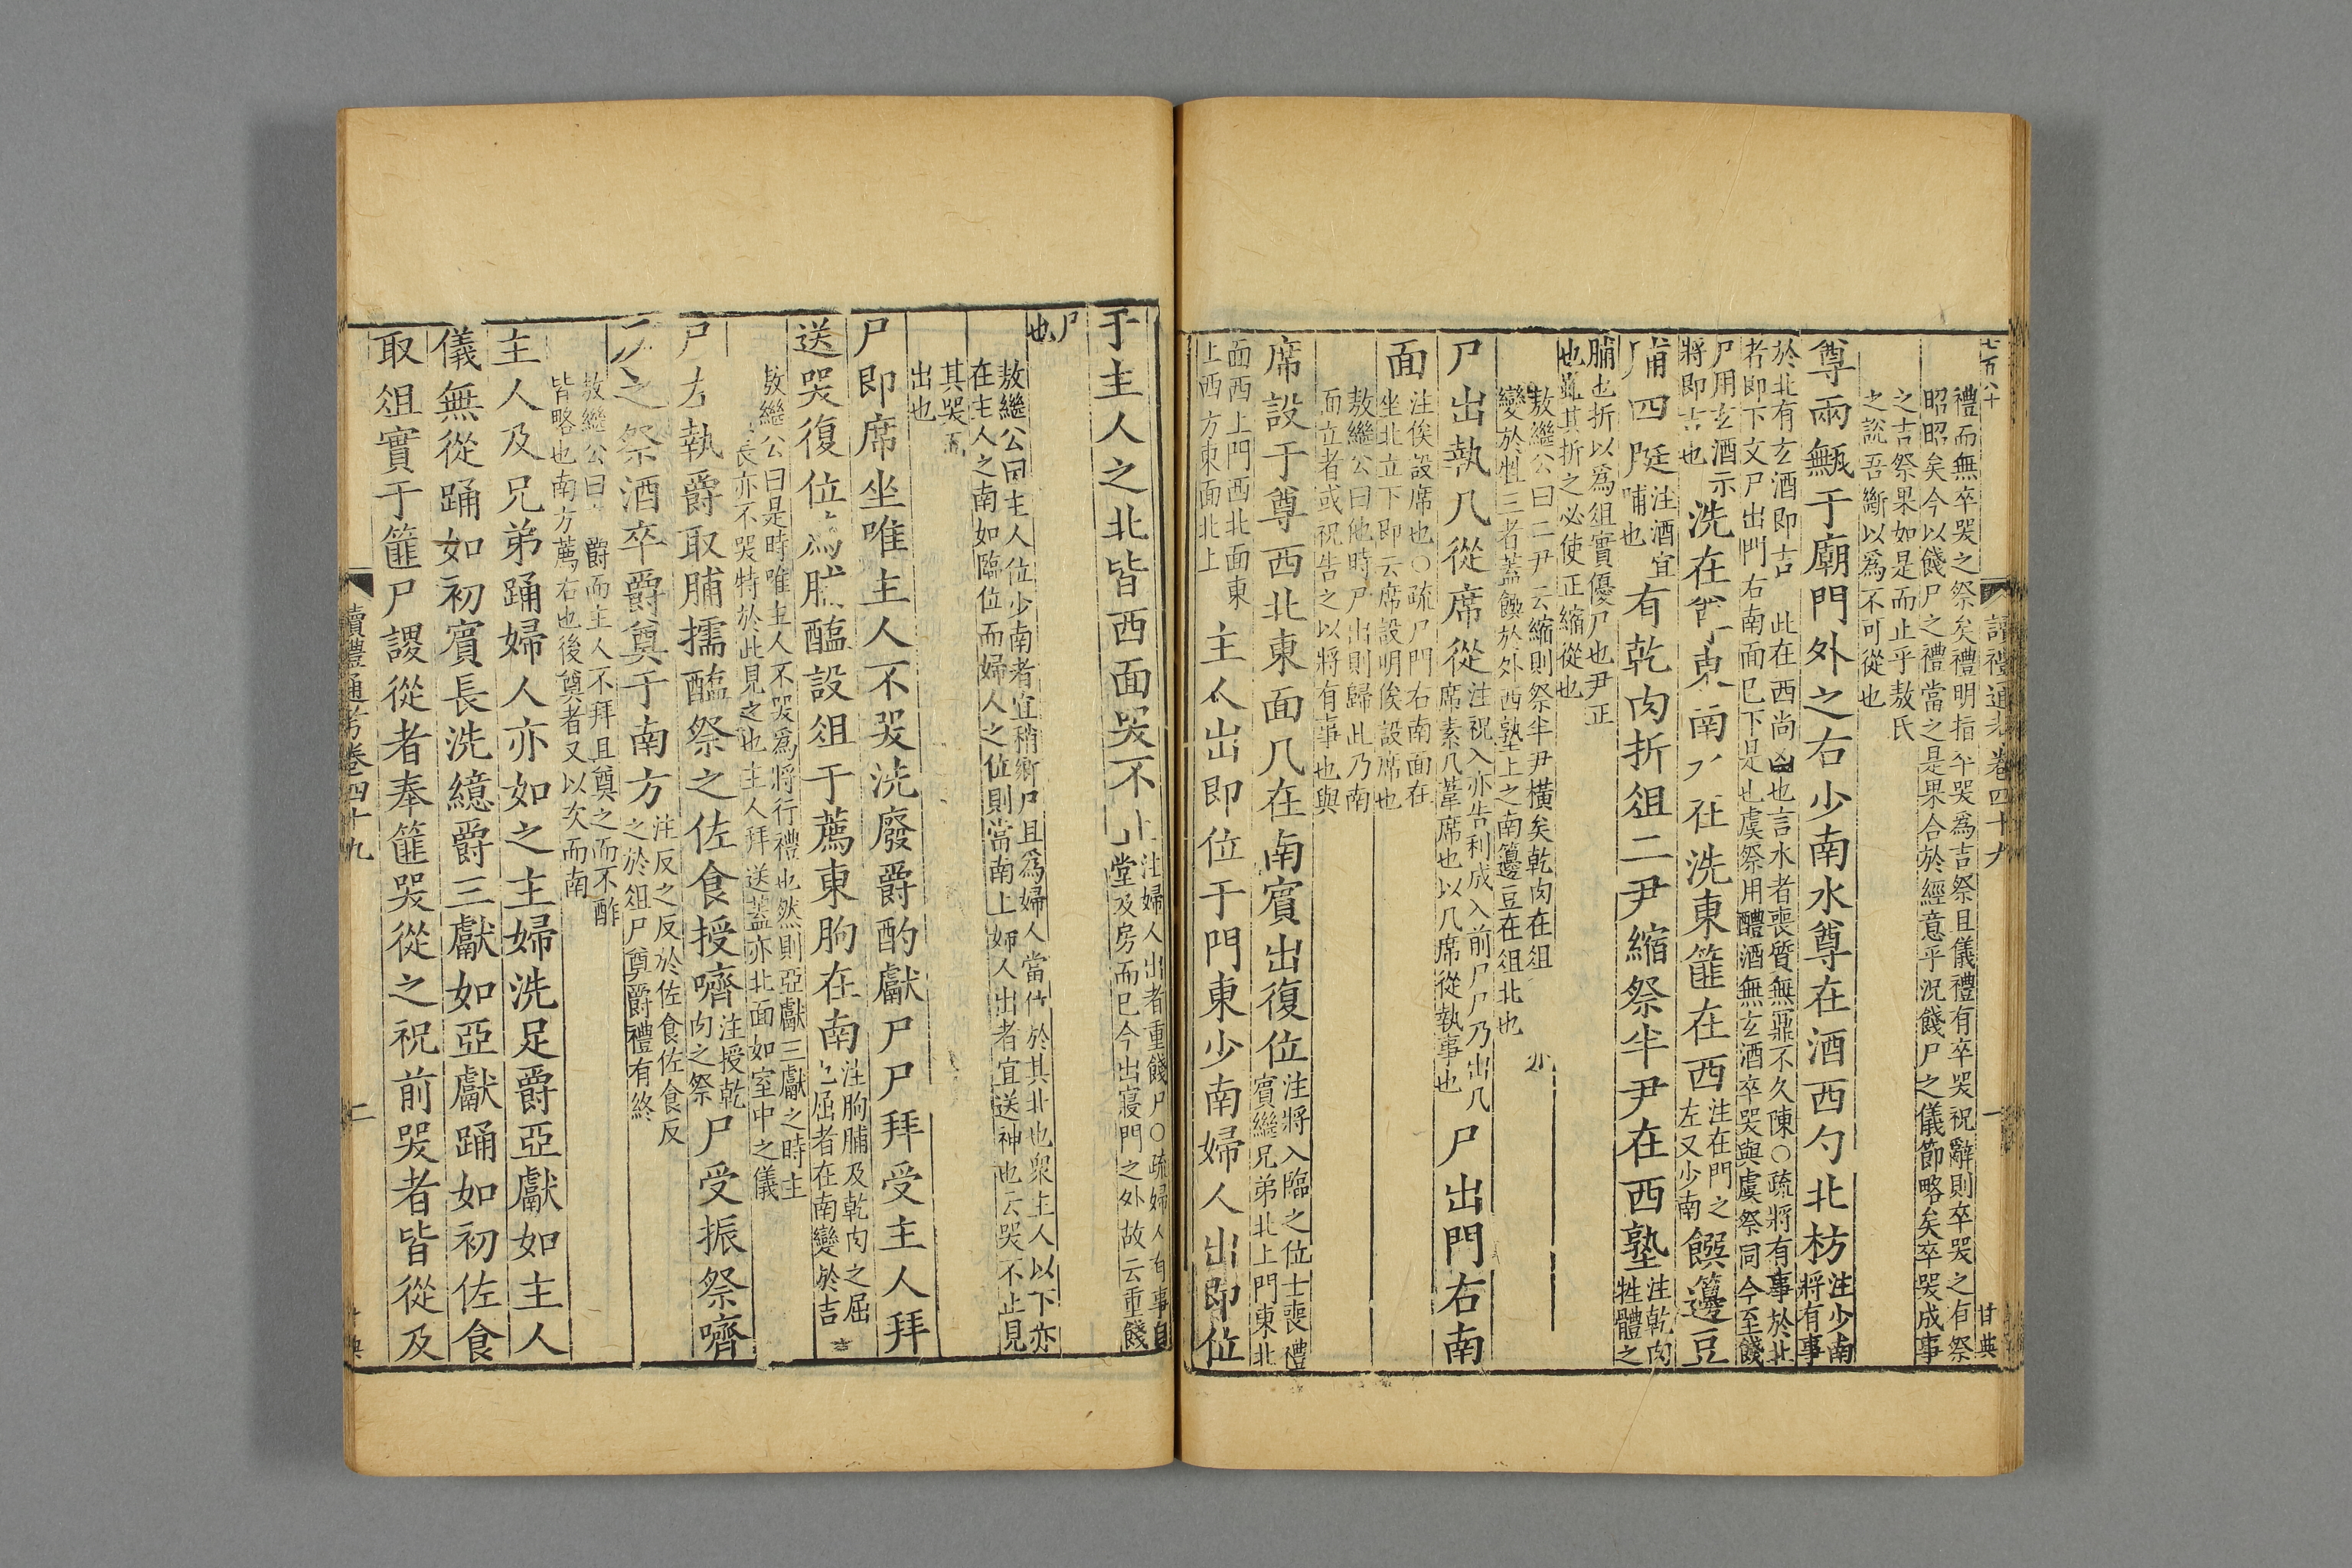 七百八十
讀禮通考卷四十九
一
甘典
禮而無卒哭之祭矣禮明指卒哭爲吉祭且儀禮有卒哭祝辭則卒哭之有祭
昭昭矣今以餞尸之禮當之是果合於經意乎況餞尸之儀節略矣卒哭成事
之吉祭果如是而止乎敖氏
之說吾斷以爲不可從也
尊兩甒于廟門外之右少南水尊在酒西勺北枋
注少南
將有事
於北有玄酒即吉 此在西尚凶也言水者喪質無鼏不久陳○疏將有事於北
者即下文尸出門右南面已下是也虞祭用醴酒無玄酒卒哭與虞祭同今至餞
尸用玄酒示
將即吉也
洗在 東南 在洗東篚在西
注在門之
左又少南
饌籩豆
脯四脡
注酒宜
脯也
有乾肉折俎二尹縮祭半尹在西塾
注乾肉
牲體之
脯也折以爲俎實優尸也尹正
也雖其折之必使正縮從也
敖繼公曰二尹云縮則祭半尹橫矣乾肉在俎
變於牲三者蓋饌於外西塾上之南籩豆在俎北也
尸出執几從席從
注祝入亦告利成入前尸尸乃出几
席素几葦席也以几席從執事也
尸出門右南
面
注俟設席也○疏尸門右南面在
坐北立下即云席設明俟設席也
敖繼公曰他時尸出則歸此乃南
面立者或祝告之以將有事也與
席設于尊西北東面几在南賓出復位
注將入臨之位士喪禮
賓繼兄弟北上門東北
面西上門西北面東
上西方東面北上
主人出即位于門東少南婦人出即位
于主人之北皆西面哭不止
注婦人出者重餞尸○疏婦人有事自
堂及房而已今出寢門之外故云重餞
尸
也
敖繼公曰主人位少南者宜稍鄉尸且爲婦人當位於其北也衆主人以下亦
在主人之南如臨位而婦人之位則當南上婦人出者宜送神也云哭不止見
其哭而
出也
尸即席坐唯主人不哭洗廢爵酌獻尸尸拜受主人拜
送哭復位 醢設俎于薦東朐在南
注朐脯及乾肉之屈
也屈者在南變於吉
敖繼公曰是時唯主人不哭爲將行禮也然則亞獻三獻之時主
 長亦不哭特於此見之也主人拜送蓋亦北面如室中之儀
尸左執爵取脯擩醢祭之佐食授嚌
注授乾
肉之祭
尸受振祭嚌
反之祭酒卒爵奠于南方
注反之反於佐食佐食反
之於俎尸奠爵禮有終
敖繼公曰 爵而主人不拜且奠之而不酢
皆略也南方薦右也後奠者又以次而南
主人及兄弟踊婦人亦如之主婦洗足爵亞獻如主人
儀無從踊如初賓長洗繶爵三獻如亞獻踊如初佐食
取俎實于篚尸謖從者奉篚哭從之祝前哭者皆從及
讀禮通考卷四十九
二
甘典